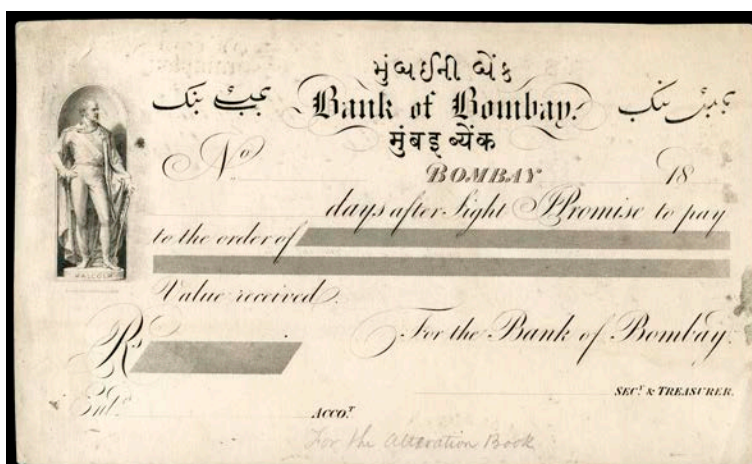 મુંબઈની બેંક
بمبئے بنک
Bank of Bombay.
بمبئ بنک
मुंबइ ब्येंक
No
BOMBAY
18
days after Sight I Promise to pay
to the order of
Value received.
Rs
For the Bank of Bombay.
Entd
ACCOT
SECY & TREASURER.
MALCOLM
For the Alteration Book